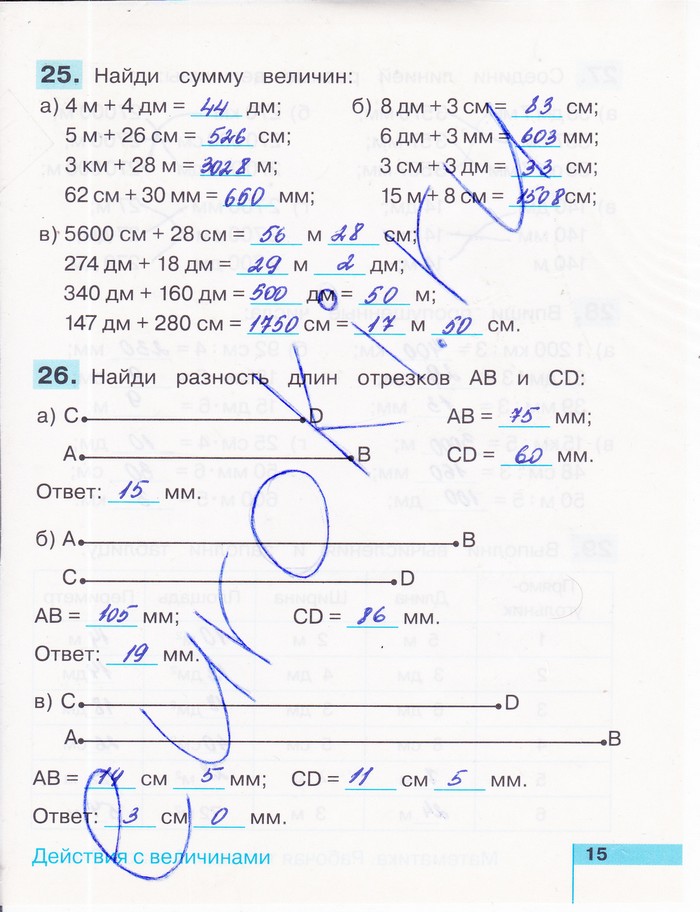 25. Найди сумму величин:
а) 4 м + 4 дм = 44 дм;
5 м + 26 см = 526 см;
3 км + 28 м = 3028 м;
62 см + 30 мм = 650 мм;
б) 8 дм + 3 см = 83 см;
6 дм + 3 мм = 603 мм;
3 см + 3 дм = 33 см;
15 м + 8 см = 1508 см;
в) 5600 см + 28 см = 56 м 28 см;
274 дм + 18 дм = 29 м 2 дм;
340 дм + 160 дм = 500 дм = 50 м;
147 дм + 280 см = 1750 см = 17 м 50 см.
26. Найди разность длин отрезков AB и CD:
а) C D
AB = 75 мм;
A B
CD = 60 мм.
Ответ: 15 мм.
б) A B
C D
AB = 105 мм; CD = 86 мм.
Ответ: 19 мм.
в) C D
A B
AB = 14 см 5 мм; CD = 11 см 5 мм.
Ответ: 3 см 0 мм.
Действия с величинами 15